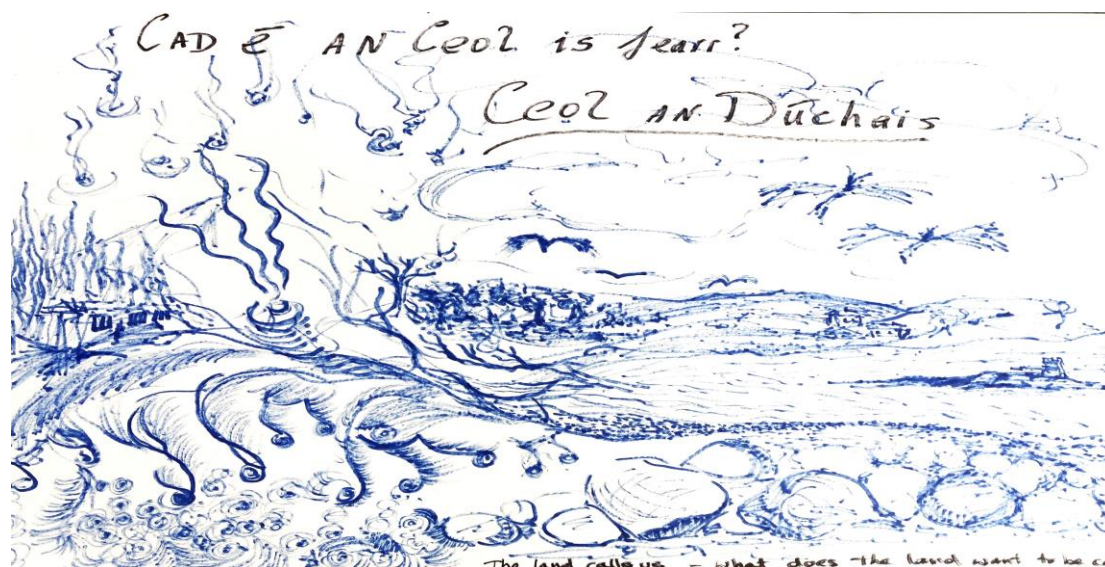 CAD Ē AN Ceol is fearr?
Ceol AN Dūchais
The land calls us - what does the land want to be